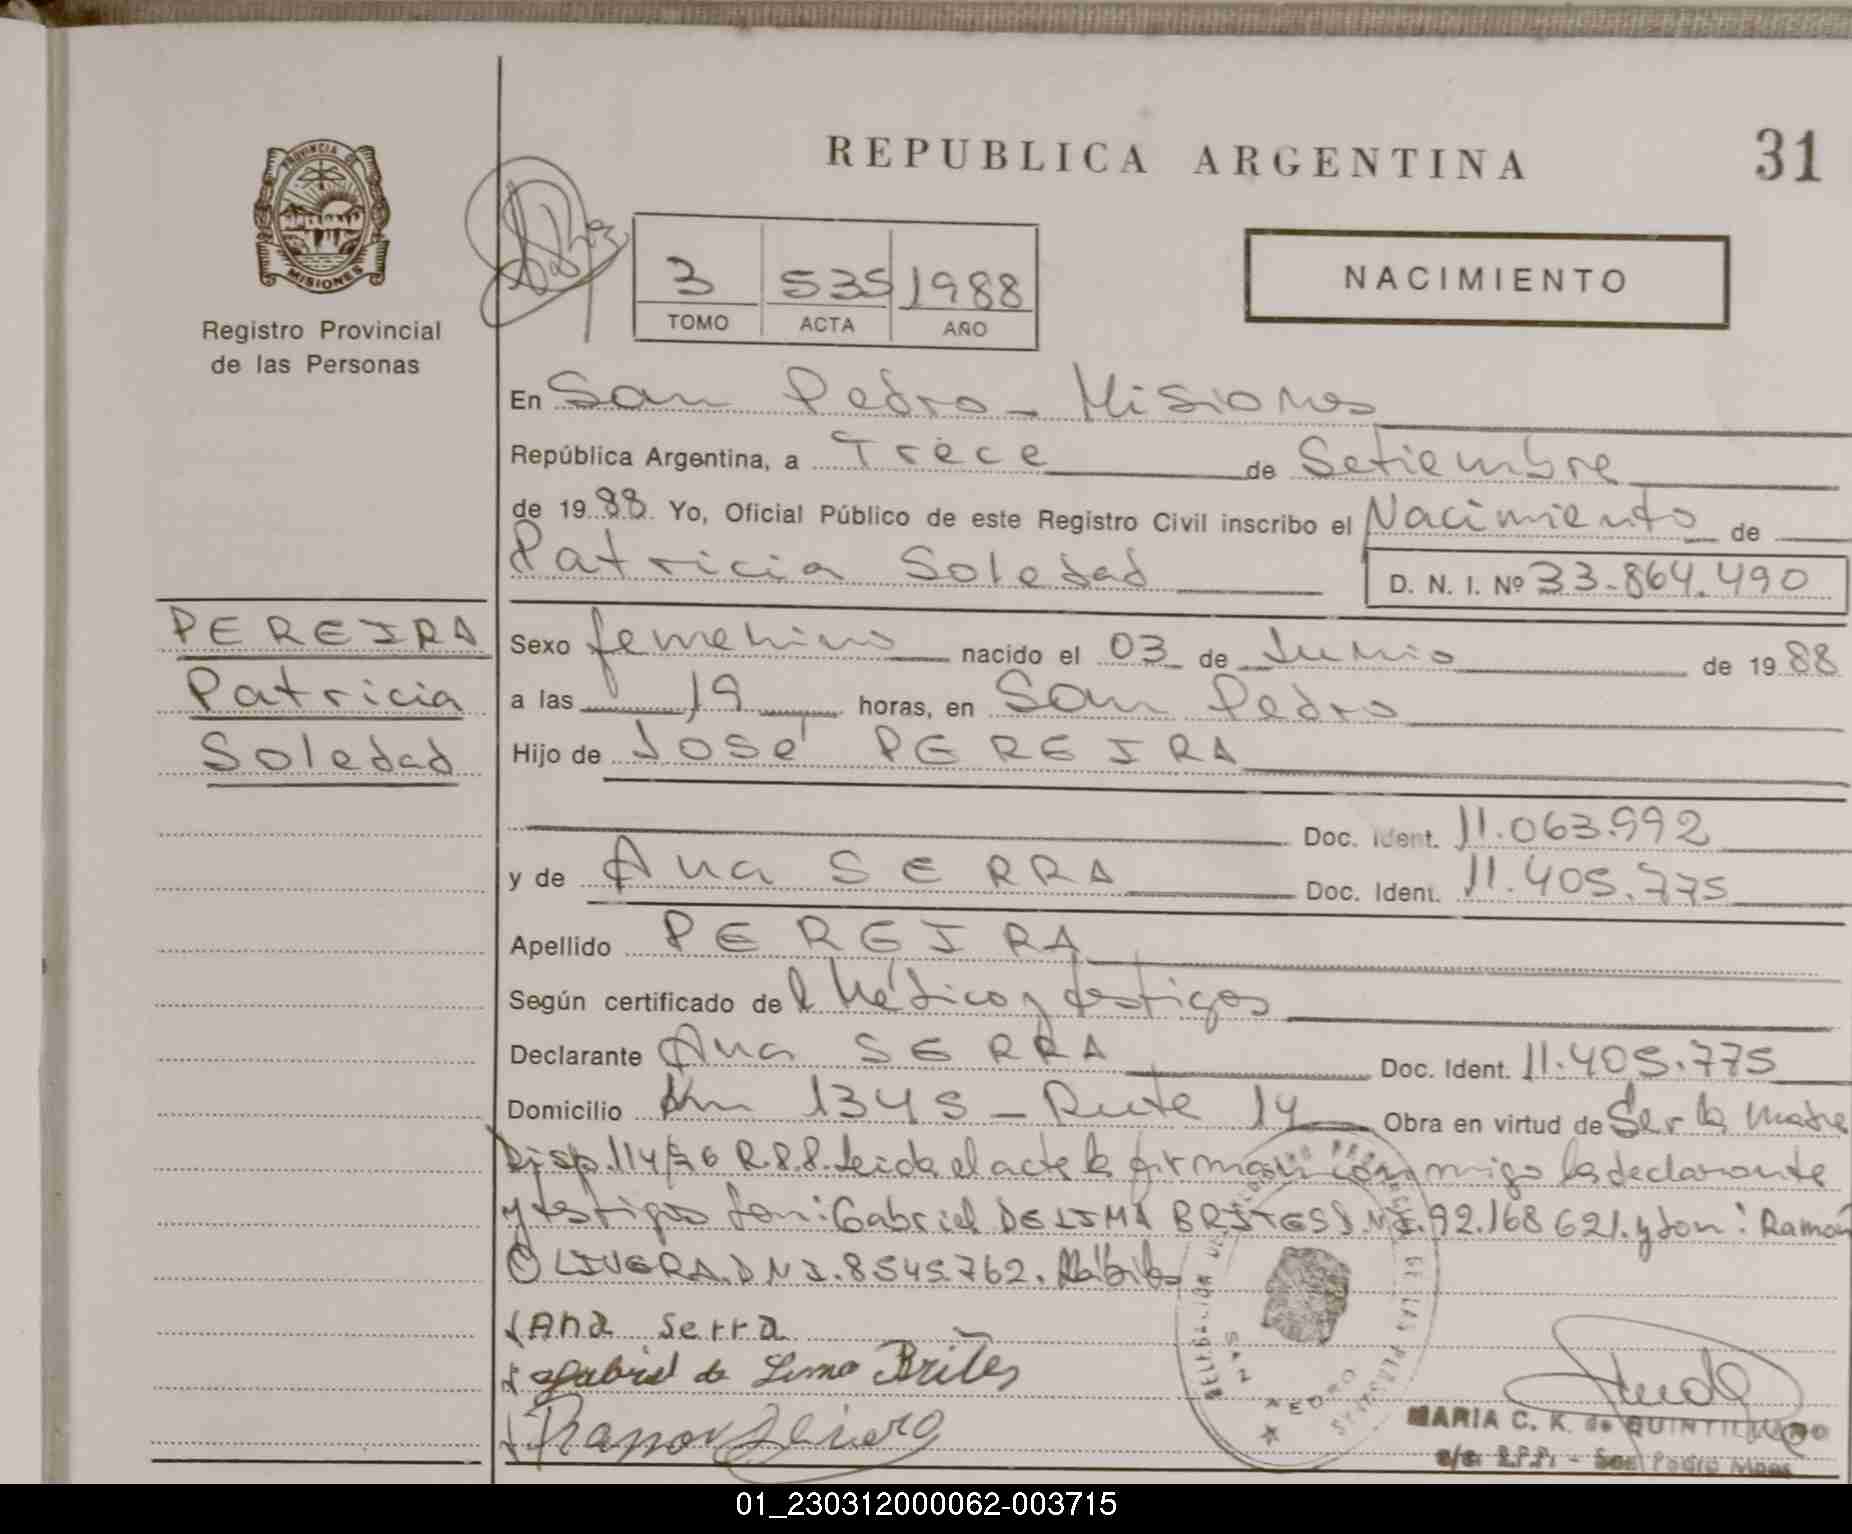 REPUBLICA ARGENTINA
31
PROVINCIA DE
MISIONES
Registro Provincial
de las Personas
3 535 1988
TOMO ACTA AÑO
NACIMIENTO
En San Pedro - Misiones
República Argentina, a Trece de Setiembre
de 1988. Yo, Oficial Público de este Registro Civil inscribo el Nacimiento de
Patricia Soledad
D. N. I. Nº 33.864.490
PEREIRA
Patricia
Soledad
Sexo femenino nacido el 03 de Junio de 1988
a las 19 horas, en San Pedro
Hijo de José PEREIRA
Doc. Ident. 11.063.992
y de Ana SERRA Doc. Ident. 11.405.775
Apellido PEREIRA
Según certificado del Médico y testigos
Declarante Ana SERRA Doc. Ident. 11.405.775
Domicilio Km 1345 - Ruta 14 Obra en virtud de Ser la madre
Disp. 114/76 R.P.P. Leida el acta la firman conmigo la declarante
y testigos Son: Gabriel DE LIMA BRITES D.N.I. 92.168 621. y Don: Ramón
OLIVERA. DNI. 8545.762. Hábiles
Ana Serra
Gabriel de Lima Brites
Ramon
SAN PEDRO
MARIA C. K. de QUINTILIANO
San Pedro Mnes
01_230312000062-003715